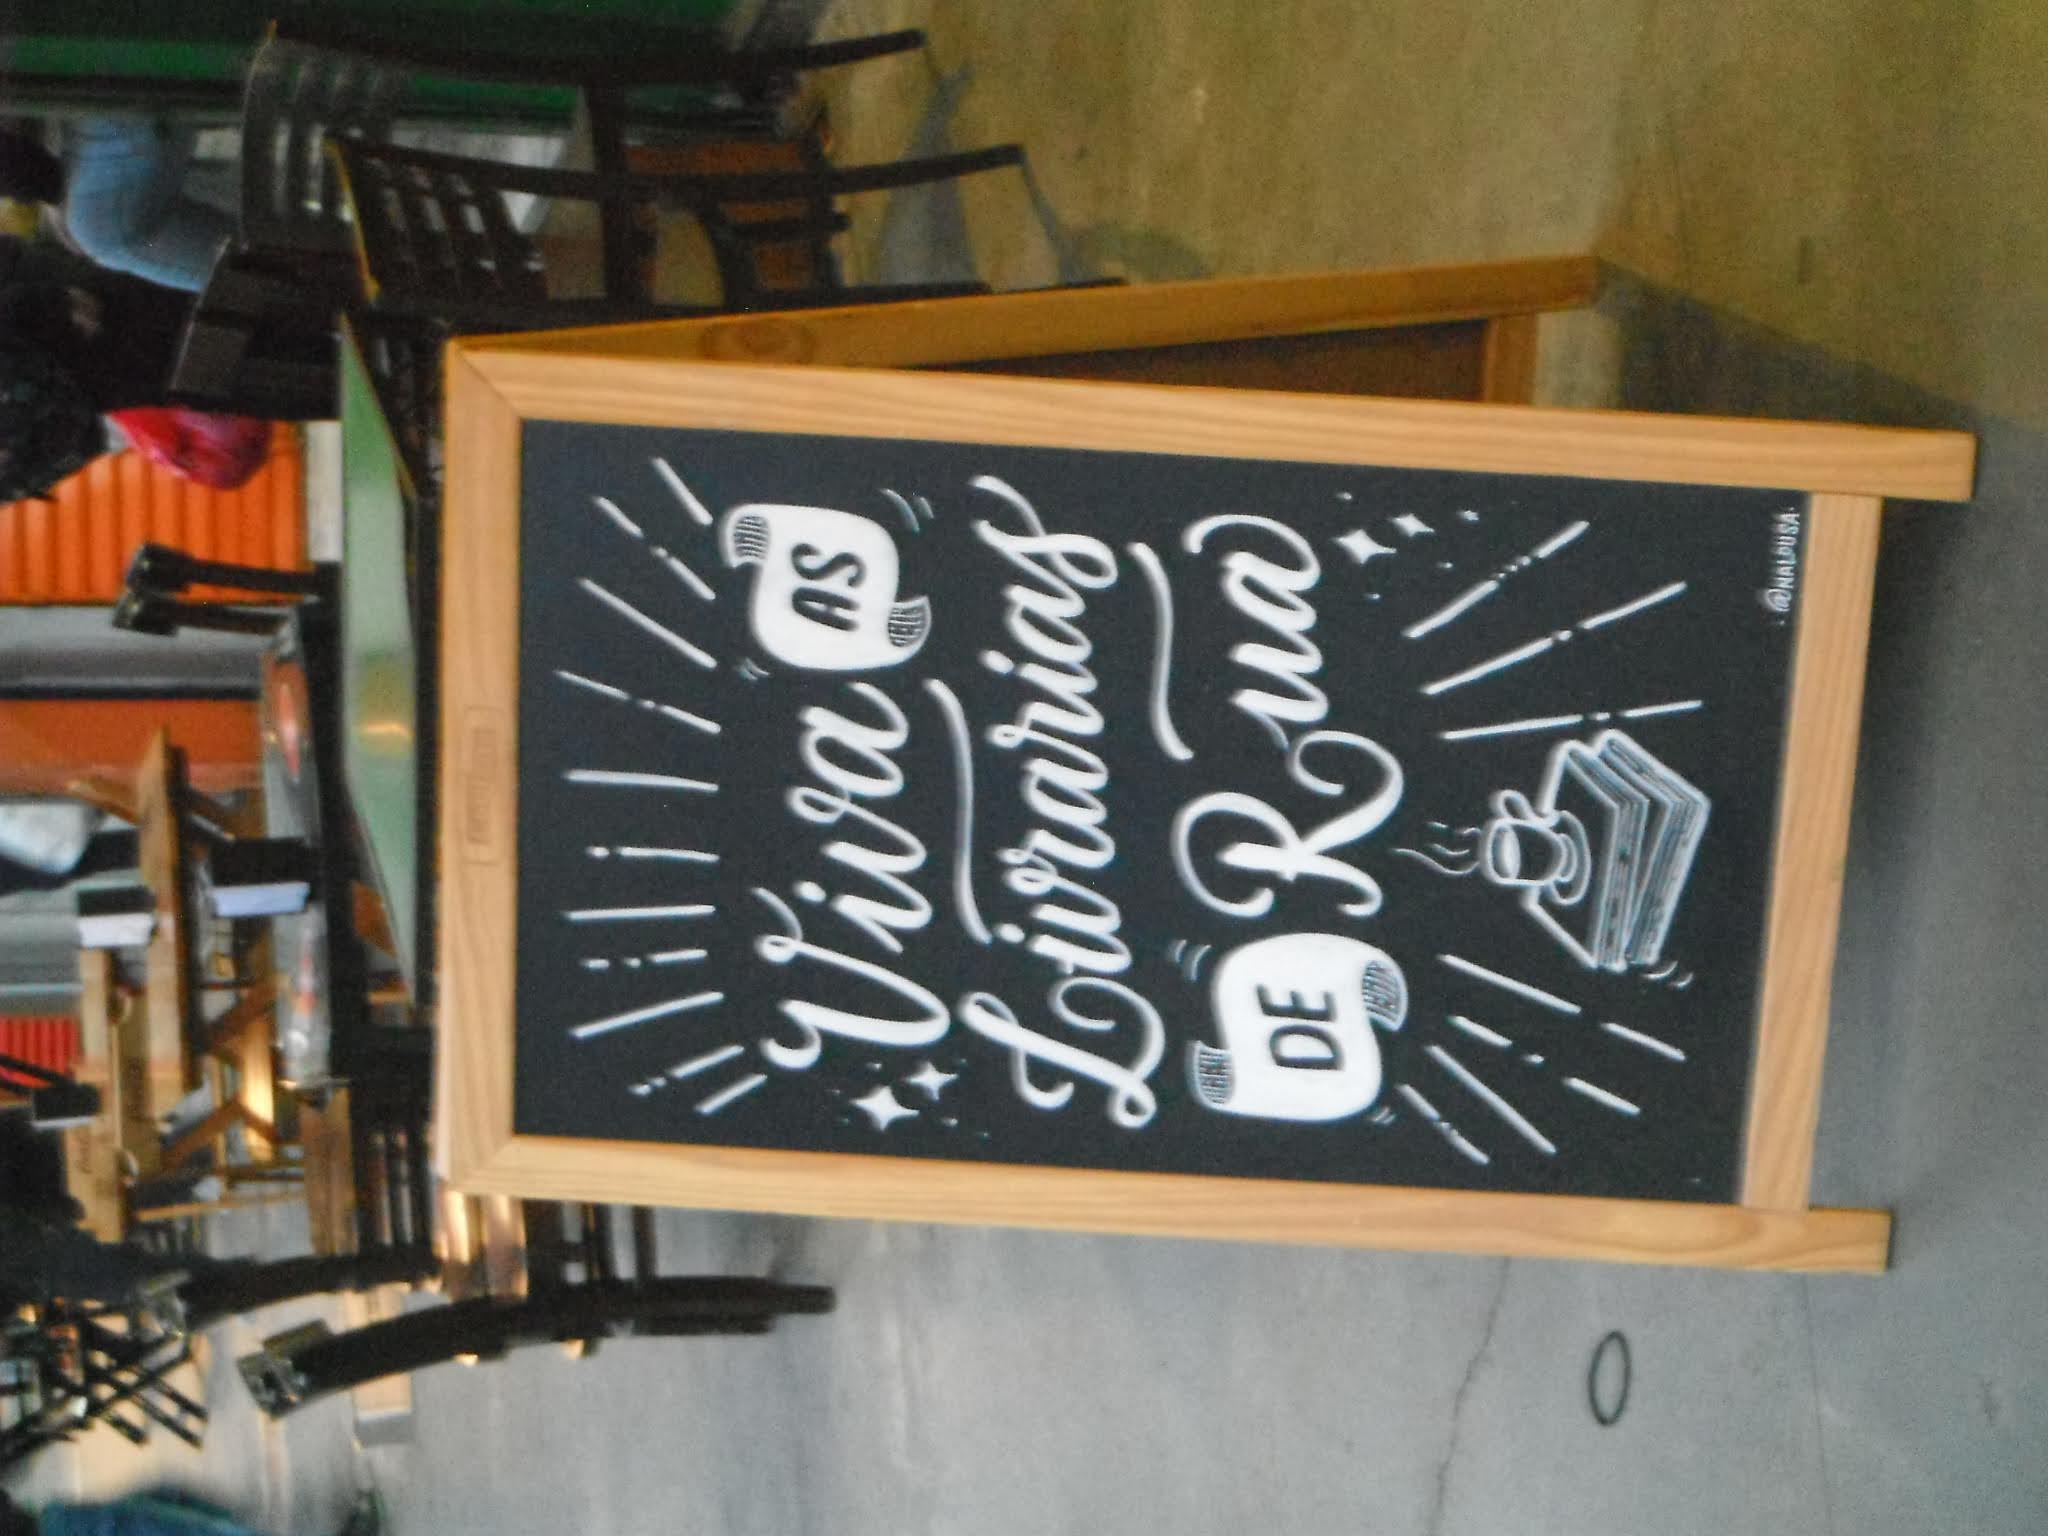 Viva AS
Livrarias
DE Rua
@NALDUSA